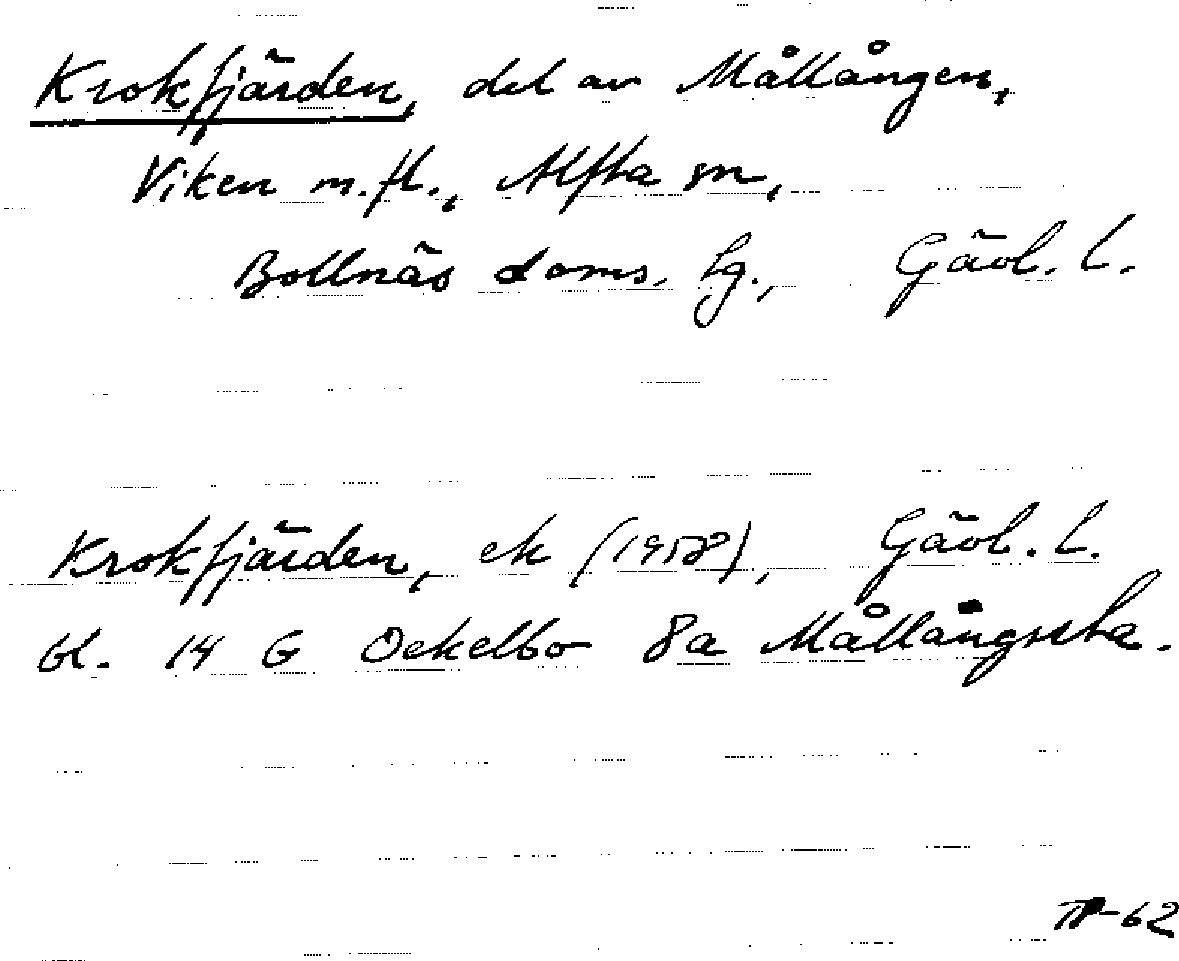 Krokfjärden, del av Mållången,
Viken m.fl., Alfta sn,
Bollnäs doms. lg., Gävl. l.
Krokfjärden, ek (1958), Gävl. l.
bl. 14 G Ockelbo 8a Mållångssta.
-62